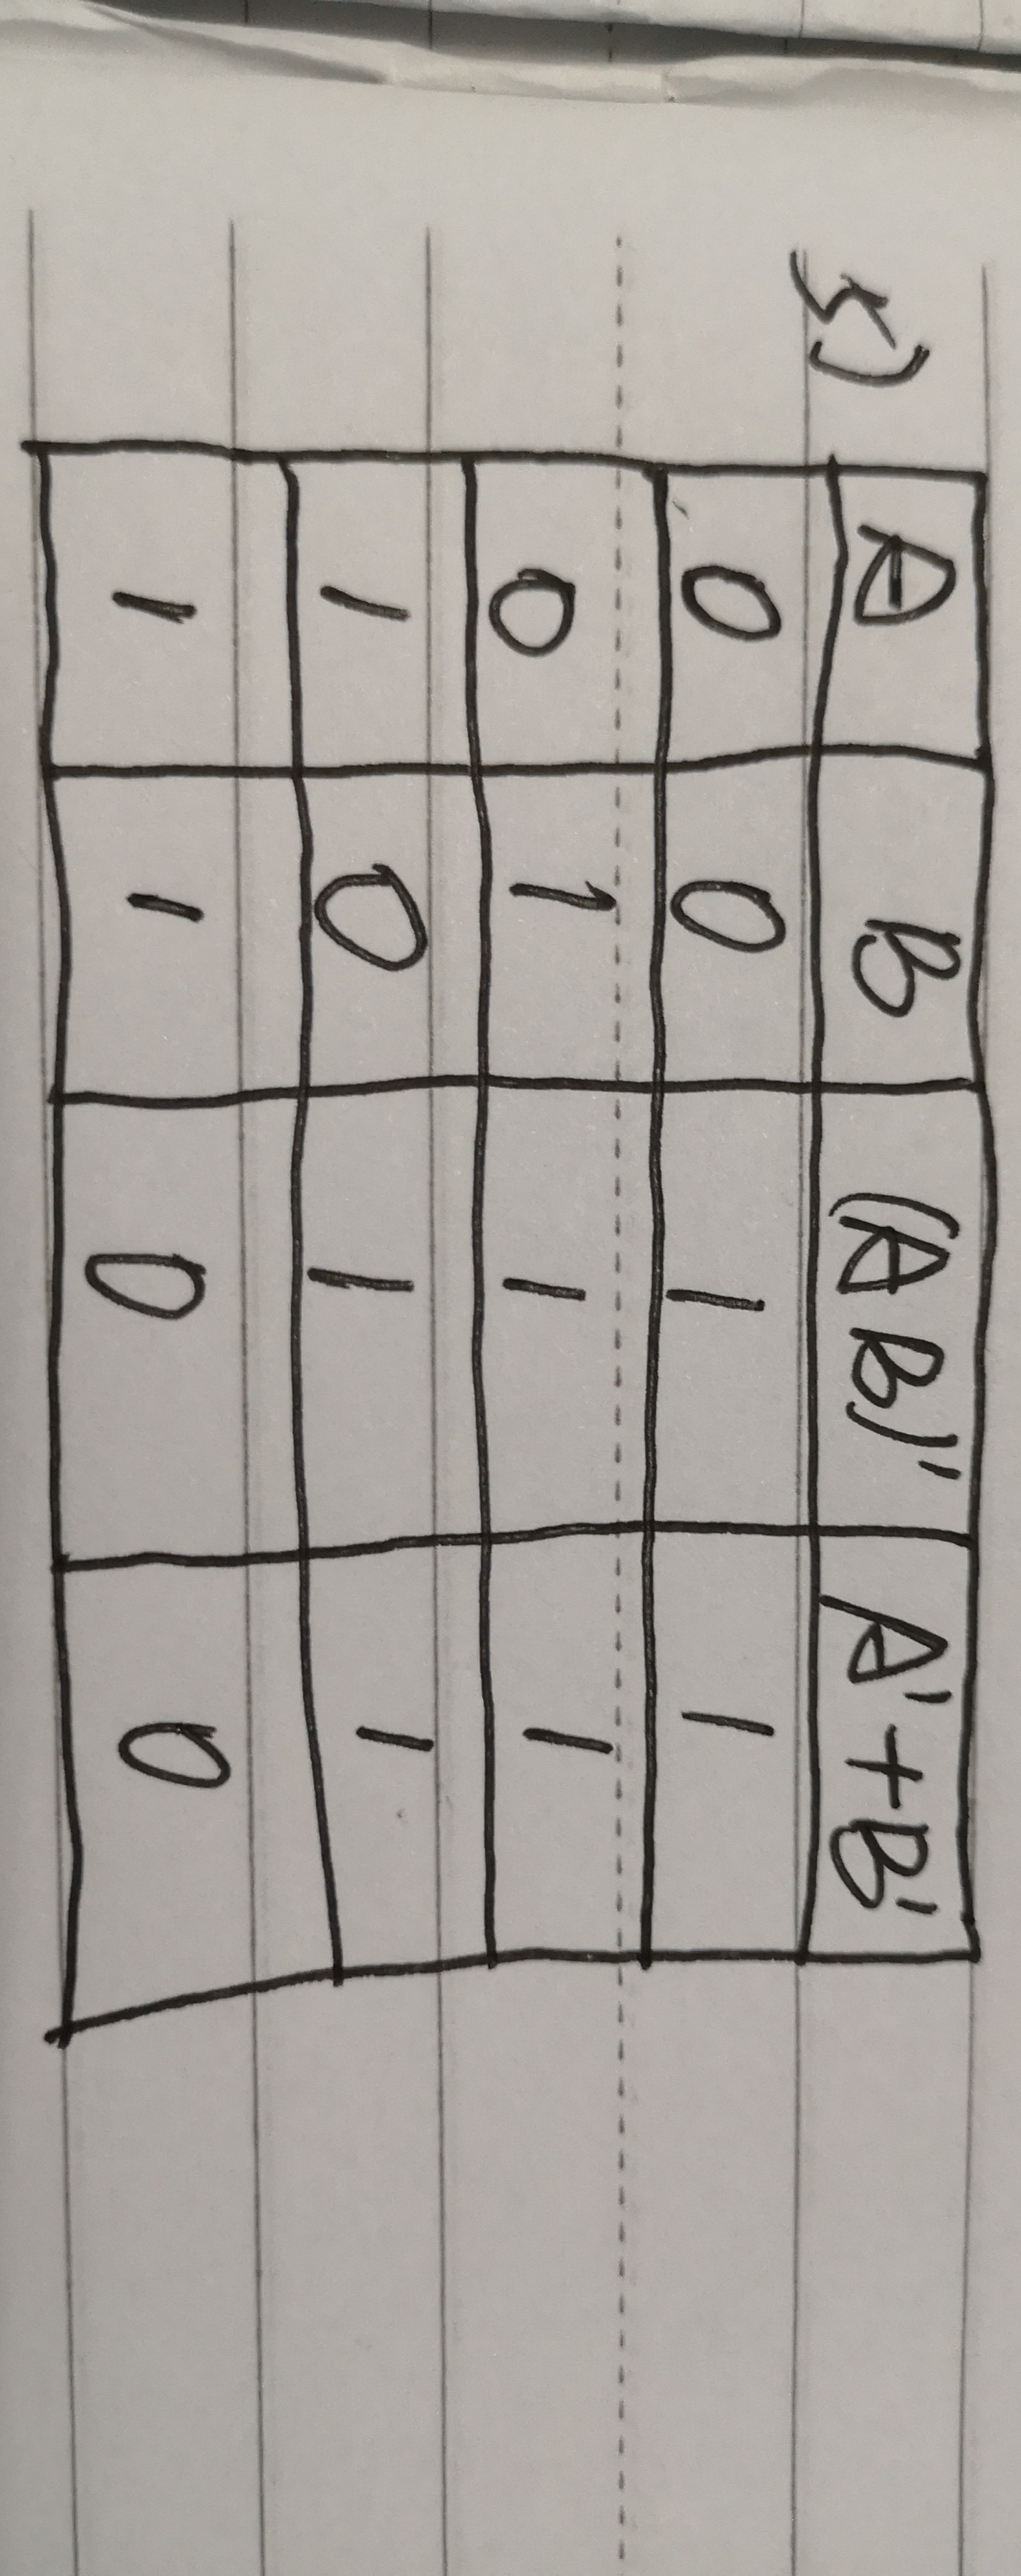 5)
A B (AB)' A'+B'
0 0 1 1
0 1 1 1
1 0 1 1
1 1 0 0